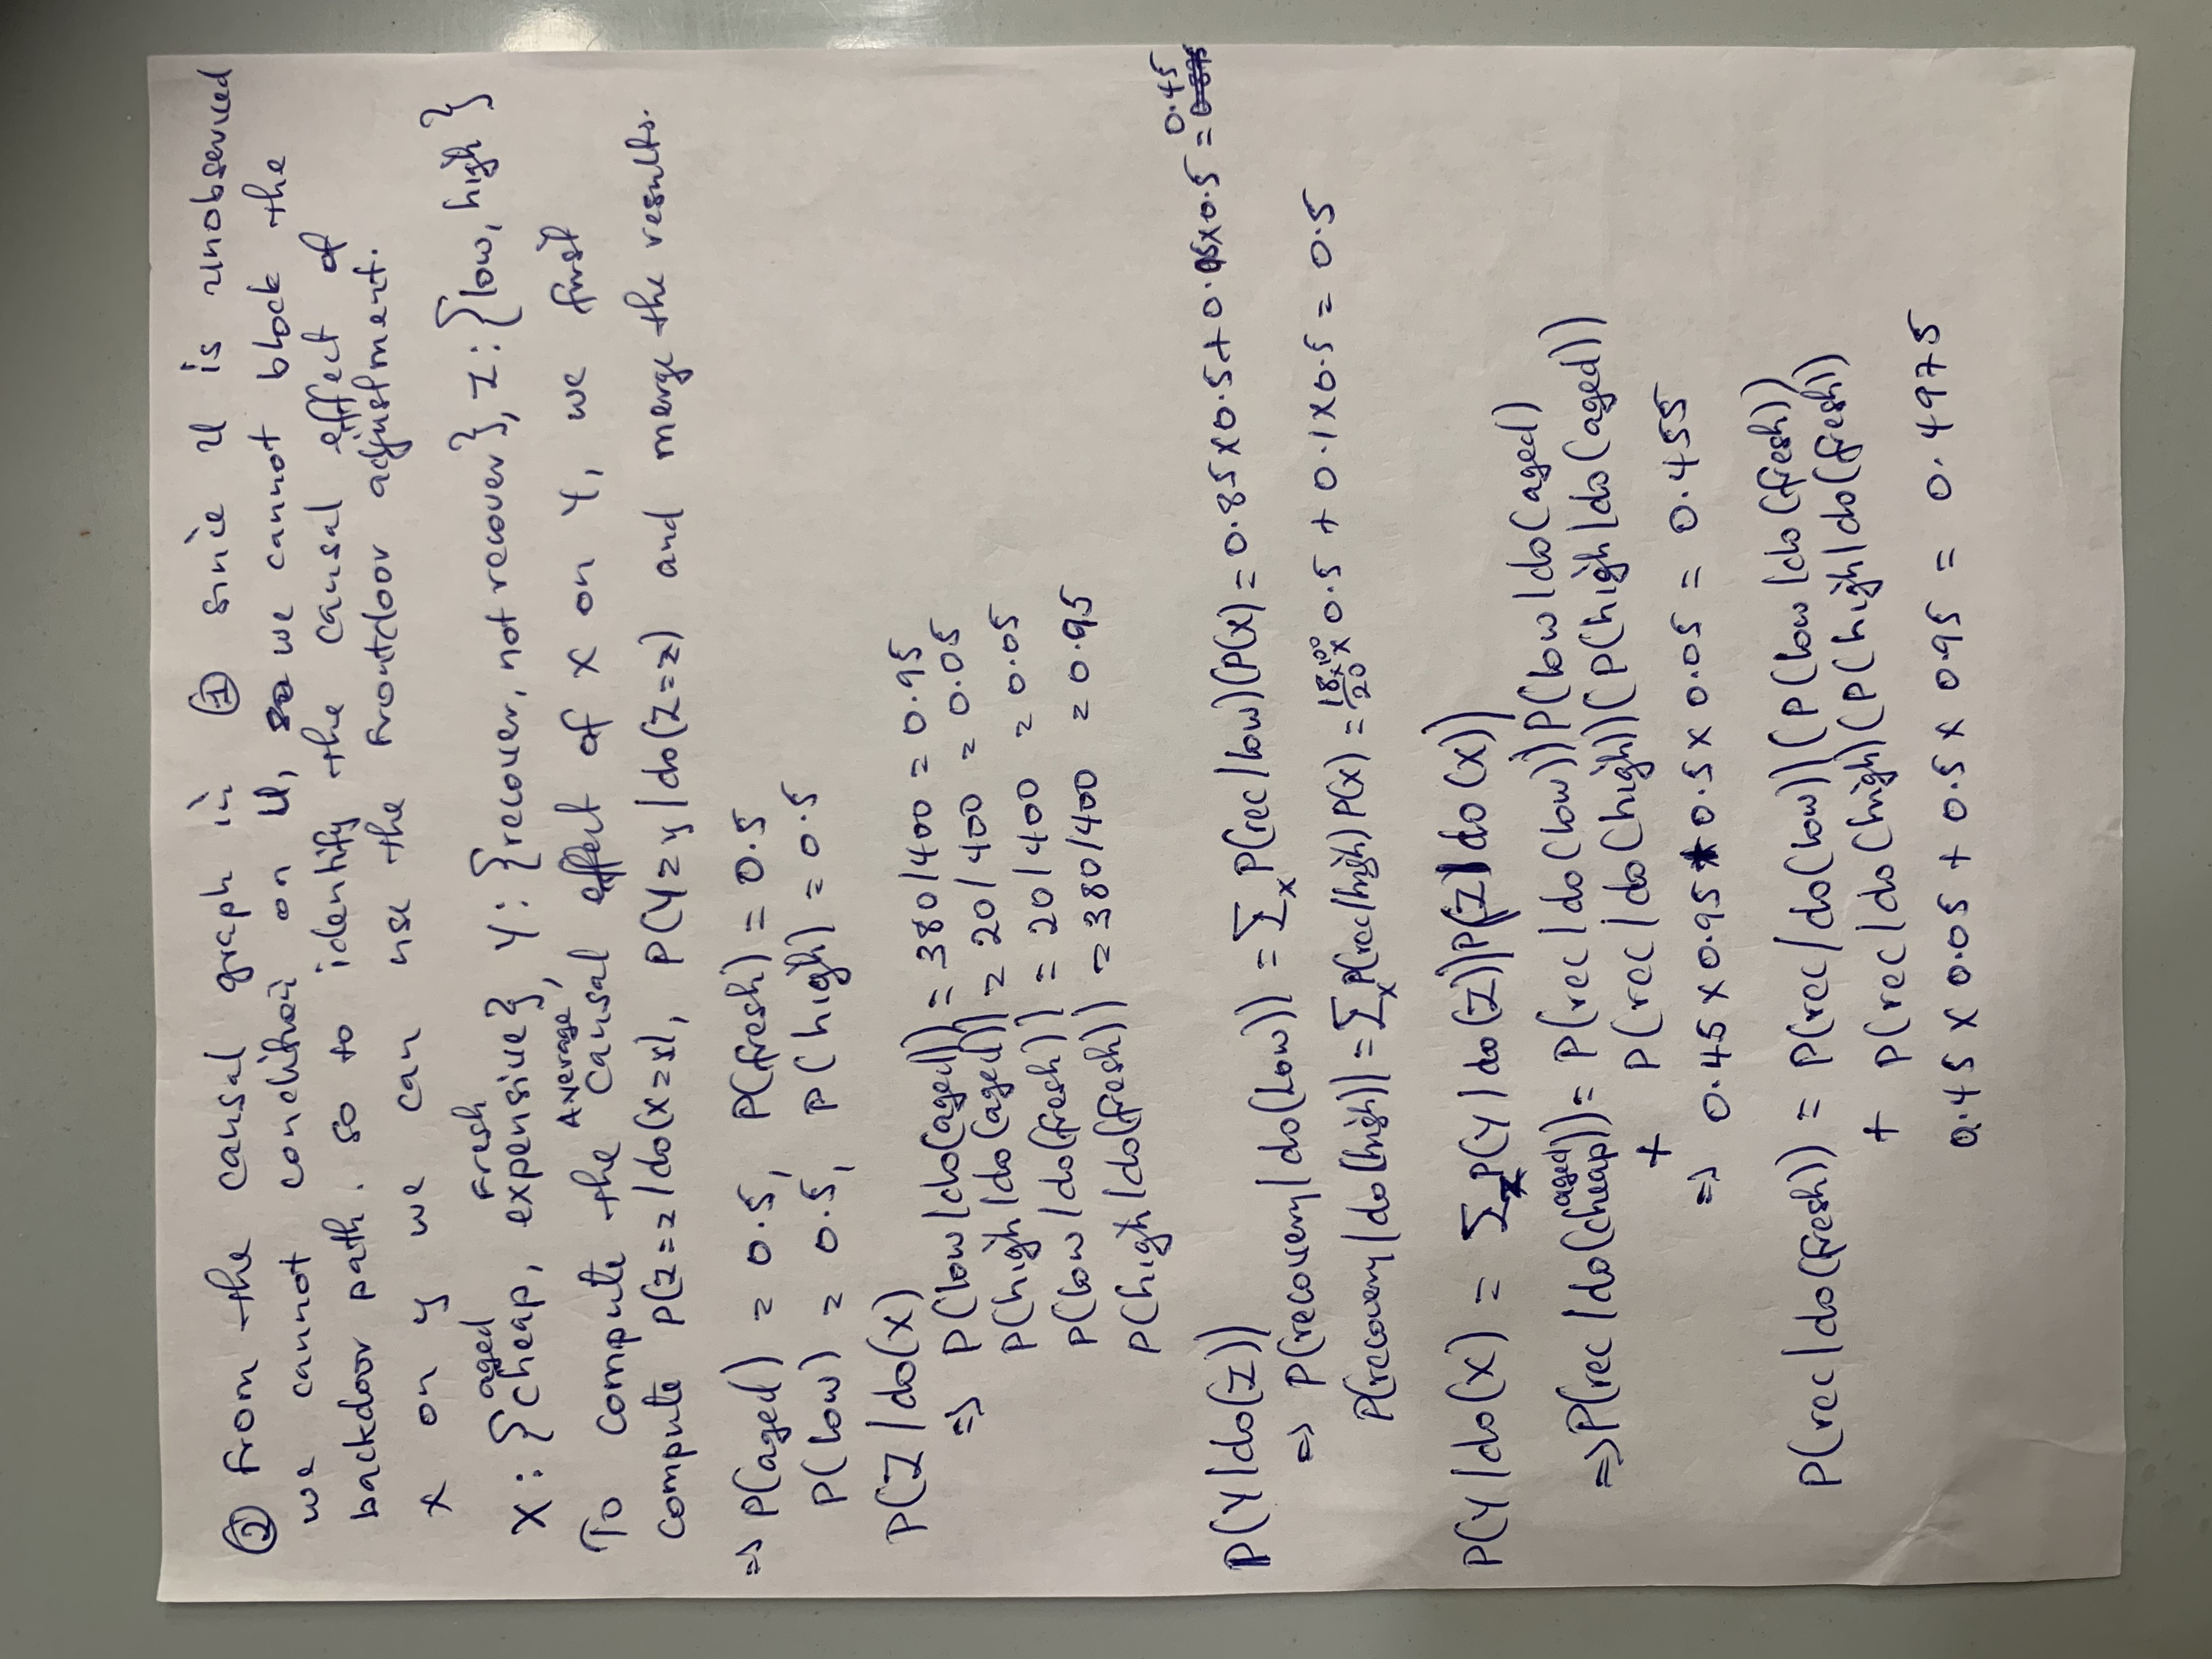 ② From the causal graph in ① since U is unobserved
we cannot condition on U, so we cannot block the
backdoor path. so to identify the causal effect of
x on y we can use the Frontdoor adjustment.
aged Fresh
X : {cheap, expensive}, Y : {recover, not recover}, Z : {low, high}
Average
To compute the causal effect of X on Y, we first
compute P(Z=z/do(X=x), P(Y=y/do(Z=z) and merge the results.
⇒ P(aged) = 0.5, P(fresh) = 0.5
P(low) = 0.5, P(high) = 0.5
P(Z/do(X)
⇒ P(low/do(aged)) = 380/400 = 0.95
P(high/do(aged)) = 20/400 = 0.05
P(low/do(fresh)) = 20/400 = 0.05
P(high/do(fresh)) = 380/400 = 0.95
0.45
P(Y/do(Z))
⇒ P(recovery/do(Low)) = Σx P(rec/low)(P(x) = 0.85x0.5+0.05x0.5 =
P(recovery/do(high)) = Σx P(rec/high) P(x) = 18/20 x 100 x 0.5 + 0.1x0.5 = 0.5
P(Y/do(X) = Σz P(Y/do(Z))P(Z/do(X))
aged
⇒ P(rec/do(cheap)) = P(rec/do(low))P(low/do(aged)
+ P(rec/do(high))(P(high/do(aged))
⇒ 0.45 x 0.95 + 0.5 x 0.05 = 0.455
P(rec/do(fresh)) = P(rec/do(low))(P(low/do(fresh))
+ P(rec/do(high)(P(high/do(fresh))
0.45 x 0.05 + 0.5 x 0.95 = 0.4975